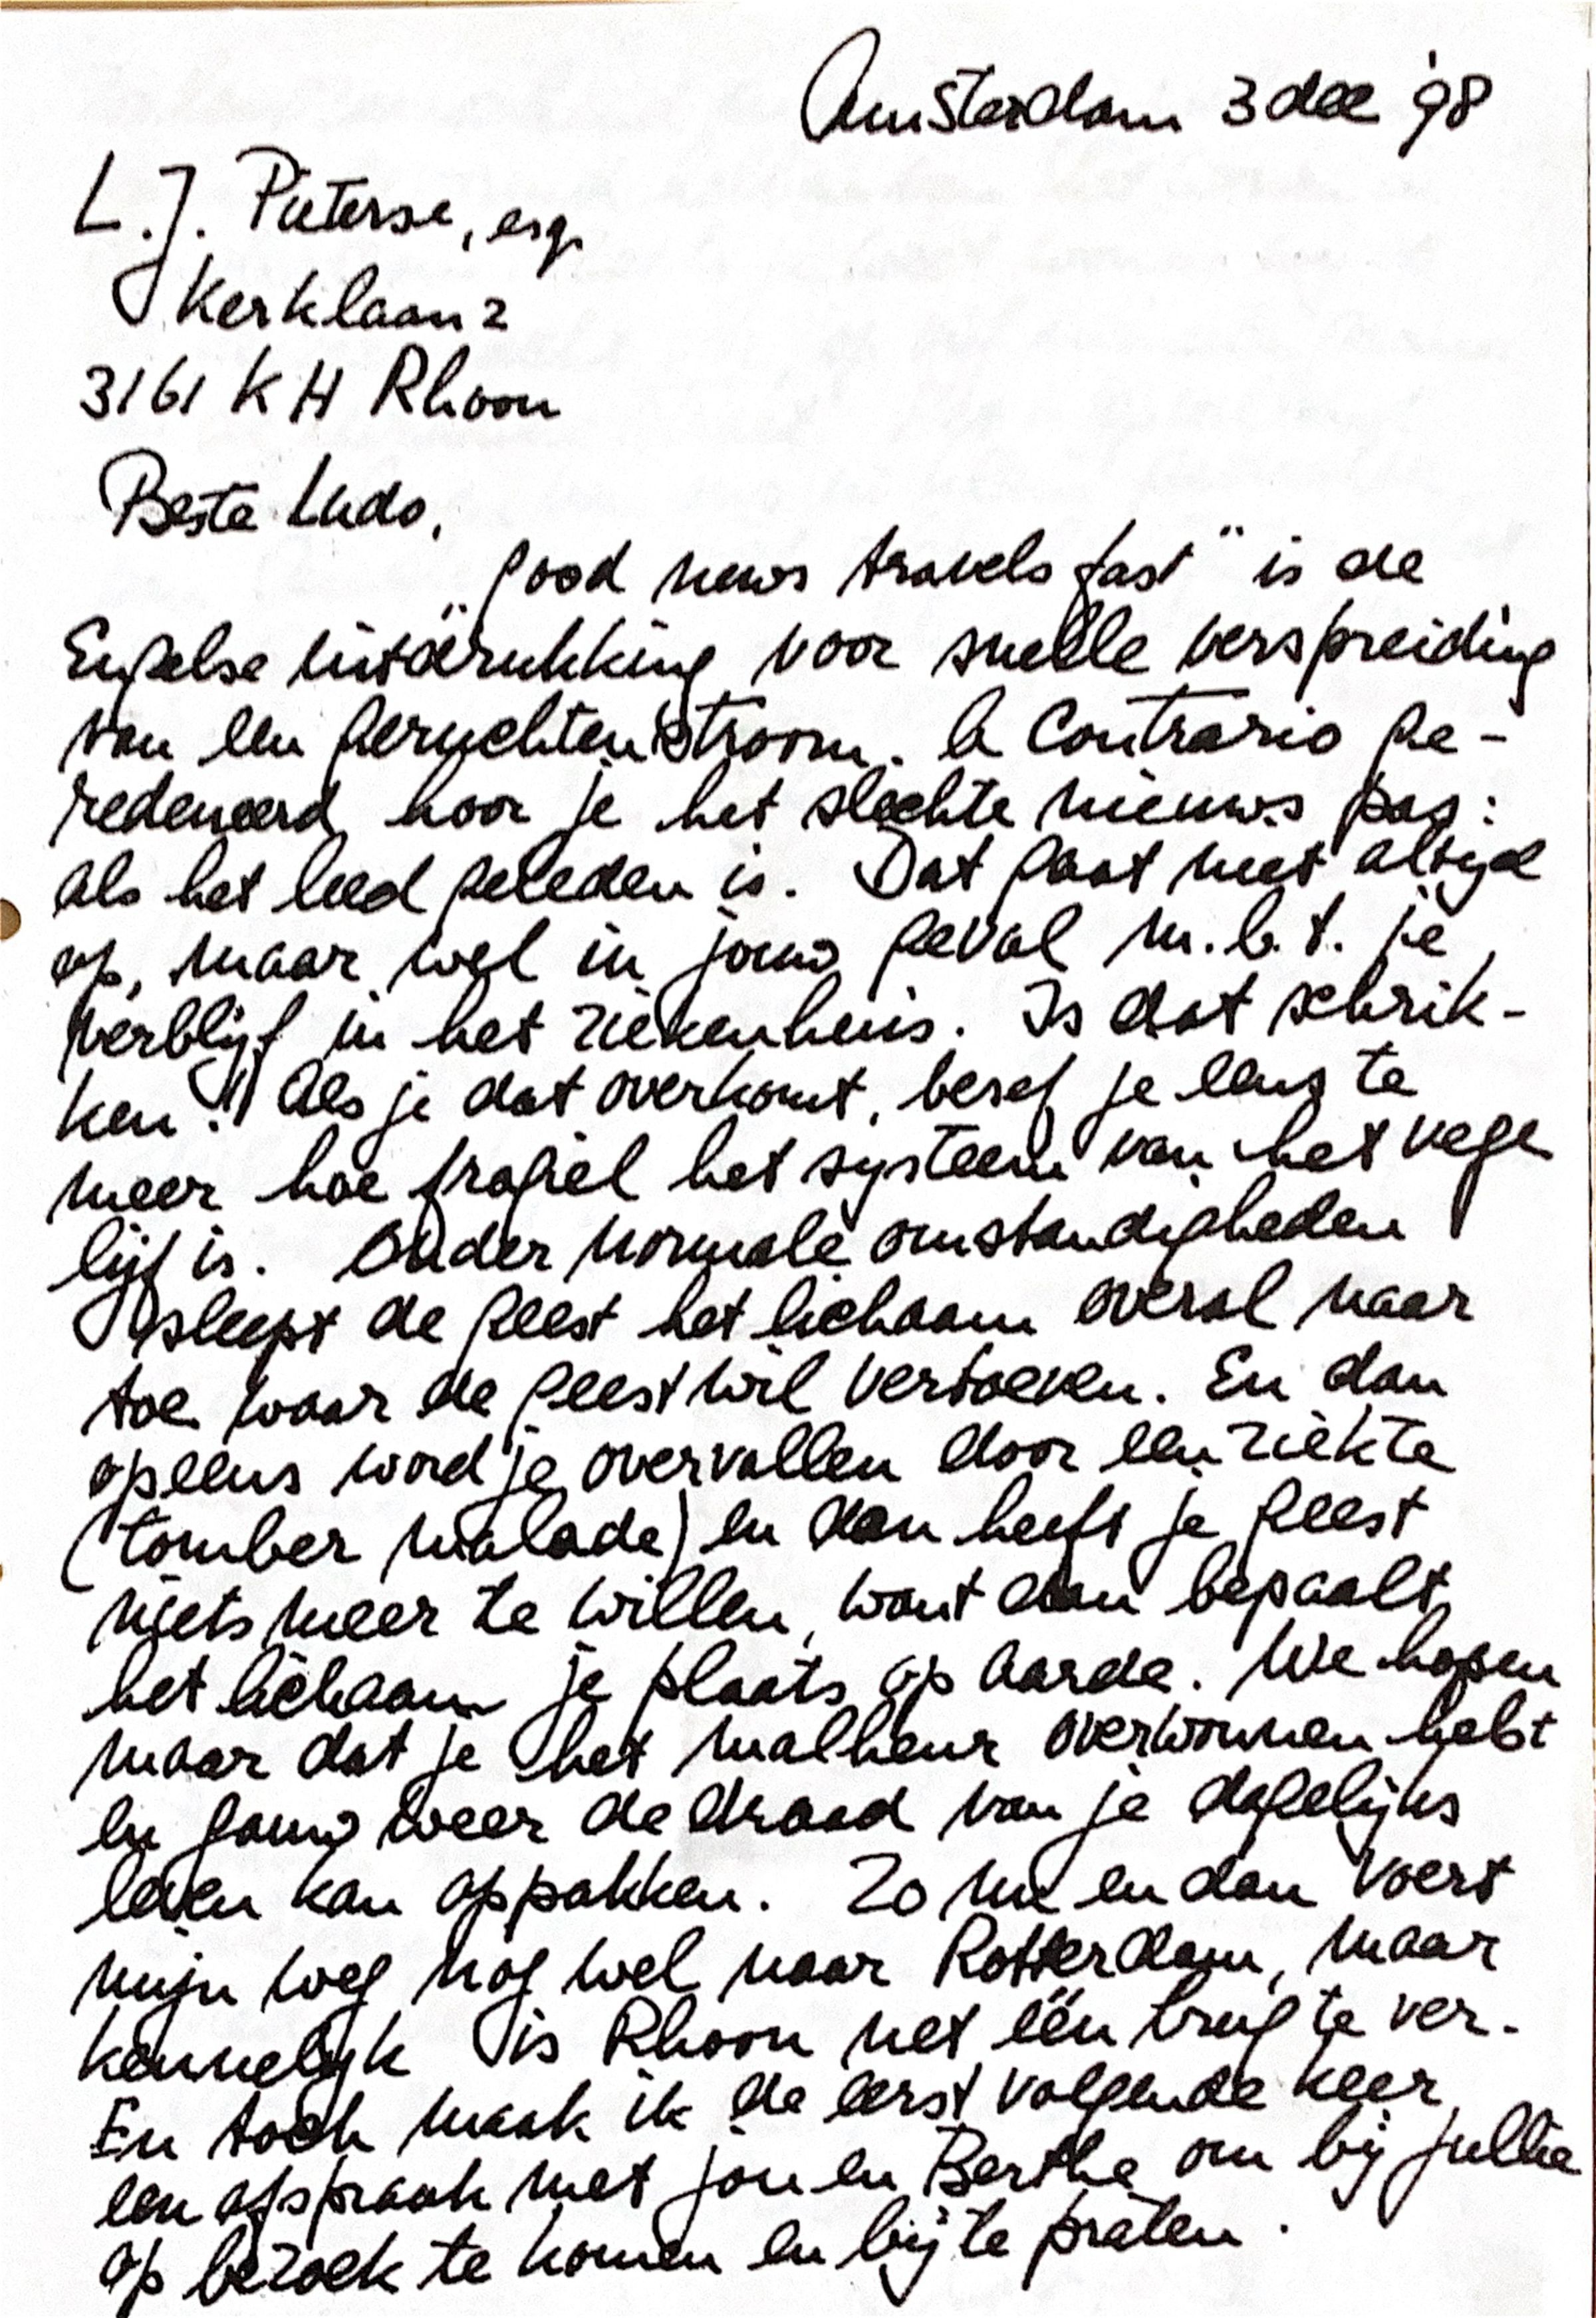 Amsterdam 3 dec '98
L.J. Pieterse, esq.
Kerklaan 2
3161 KH Rhoon
Beste Ludo,
„good news travels fast" is de
Engelse uitdrukking voor snelle verspreiding
van een geruchtenstroom. A Contrario ge-
redeneerd hoor je het slechte nieuws pas:
als het leed geleden is. Dat gaat niet altijd
op, maar wel in jouw geval m.b.t. je
verblijf in het ziekenhuis. Is dat schrik-
ken!! Als je dat overkomt, besef je eens te
meer hoe fragiel het systeem van het vege
lijf is. Onder normale omstandigheden
sleept de geest het lichaam overal naar
toe waar de geest wil vertoeven. En dan
opeens word je overvallen door een ziekte
(tomber malade) en dan heeft je geest
niets meer te willen, want dan bepaalt
het lichaam je plaats op aarde. We hopen
maar dat je het malheur overwonnen hebt
en gauw weer de draad van je dagelijks
leven kan oppakken. Zo nu en dan voert
mijn weg nog wel naar Rotterdam, maar
kennelijk is Rhoon net één brug te ver.
En toch maak ik de eerst volgende keer
een afspraak met jou en Berthe om bij jullie
op bezoek te komen en bij te praten.